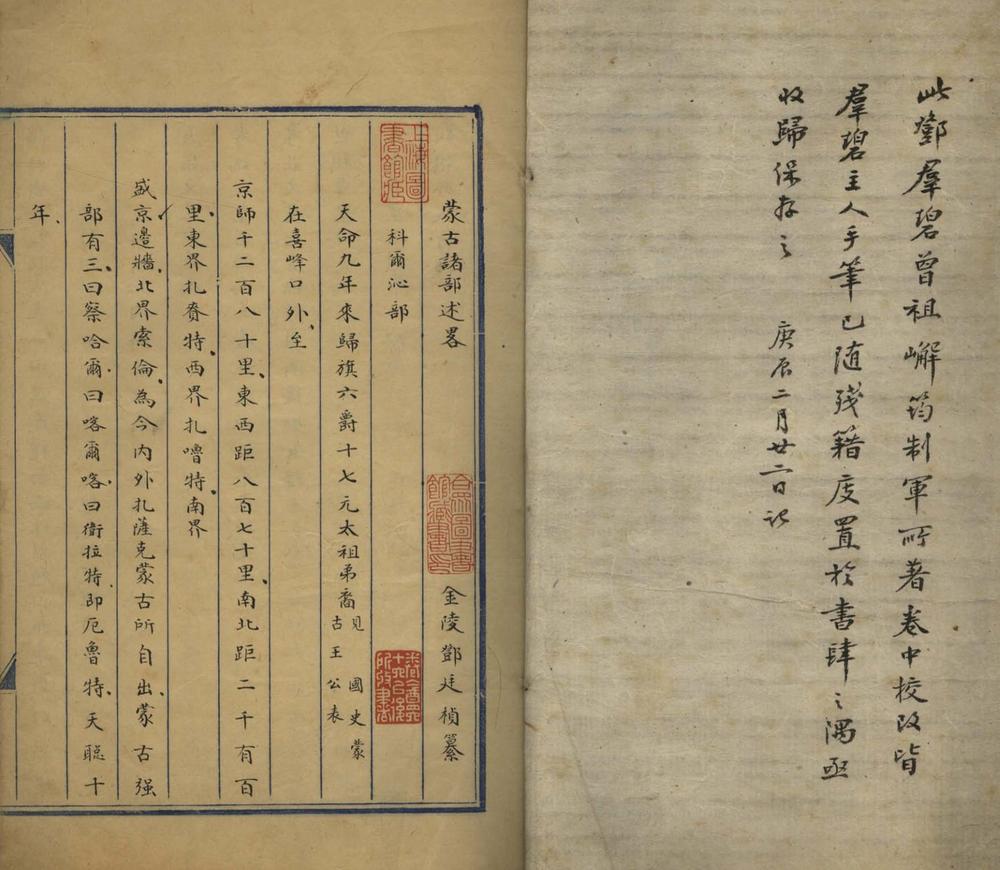 此鄧羣碧曾祖嶰筠制軍所著卷中校改皆
羣碧主人手筆已随殘籍庋置於書肆之隅亟
收歸保存之 庚辰二月廿二日記
上海圖書館藏
蒙古諸部述畧 金陵鄧廷楨纂
合眾圖書館藏書印
科爾沁部
天命九年來歸旗六爵十七元太祖弟裔見國史蒙古王公表
在喜峰口外、至
京師千二百八十里、東西距八百七十里、南北距二千有百
里、東界扎賚特、西界扎嚕特、南界
盛京邊牆、北界索倫、為今内外扎薩克蒙古所自出、蒙古强
部有三、曰察哈爾、曰喀爾喀、曰衛拉特、即厄魯特、天聰十
年、